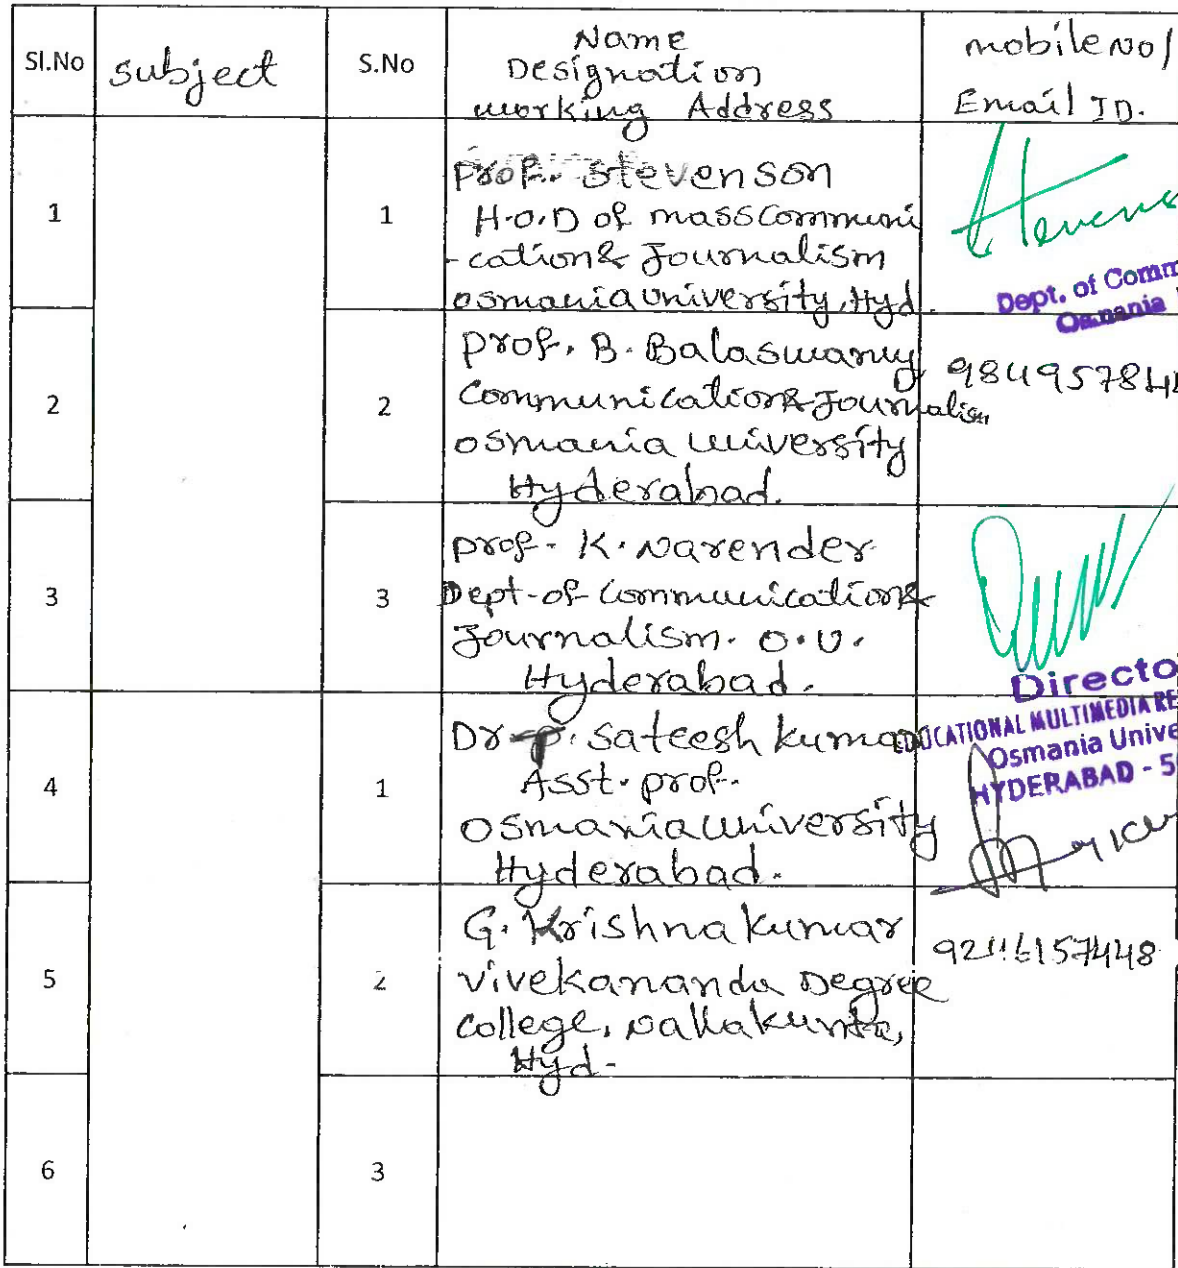 Sl.No
subject
S.No
Name
Designation
working Address
mobile No/
Email ID.
1
1
Prof. Stevenson
H.O.D of mass Communi
-cation & Journalism
osmania university, Hyd.
Dept. of Comm
Osmania
2
2
prof. B. Balaswamy
Communication & Journalism
osmania university
Hyderabad.
3
3
prof. K. Narender
Dept. of Communication &
Journalism. O.U.
Hyderabad.
Directo
EDUCATIONAL MULTIMEDIA RE
Osmania Unive
HYDERABAD - 5
4
1
Dr. P. Sateesh kumar
Asst. prof.
osmania university
Hyderabad.
5
2
G. Krishna kumar
vivekananda Degree
college, Nallakunta,
Hyd.
6
3